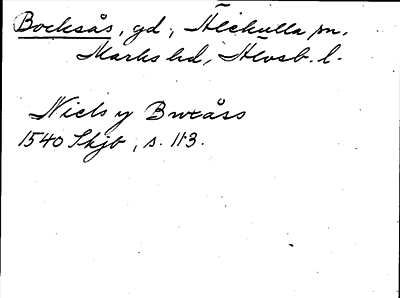 Bocksås, gd., Älekulla sn.
Marks hd, Älvsb. l.
Niels y Bwxåss
1540 Skjb, s. 113.